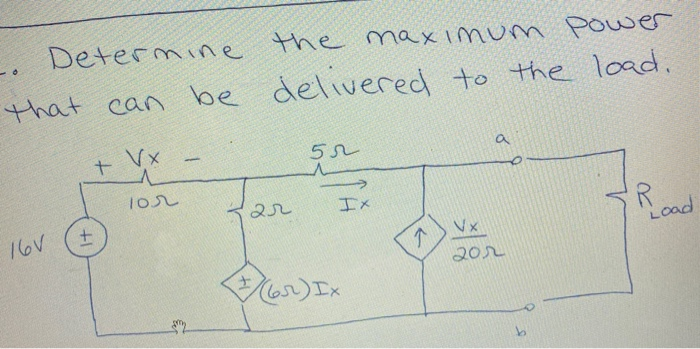 -. Determine the maximum power
that can be delivered to the load.
+ Vx -
5Ω
a
10Ω
2Ω
Ix
R Load
16V
+
-
↑
Vx
20Ω
+
-
(6Ω)Ix
b